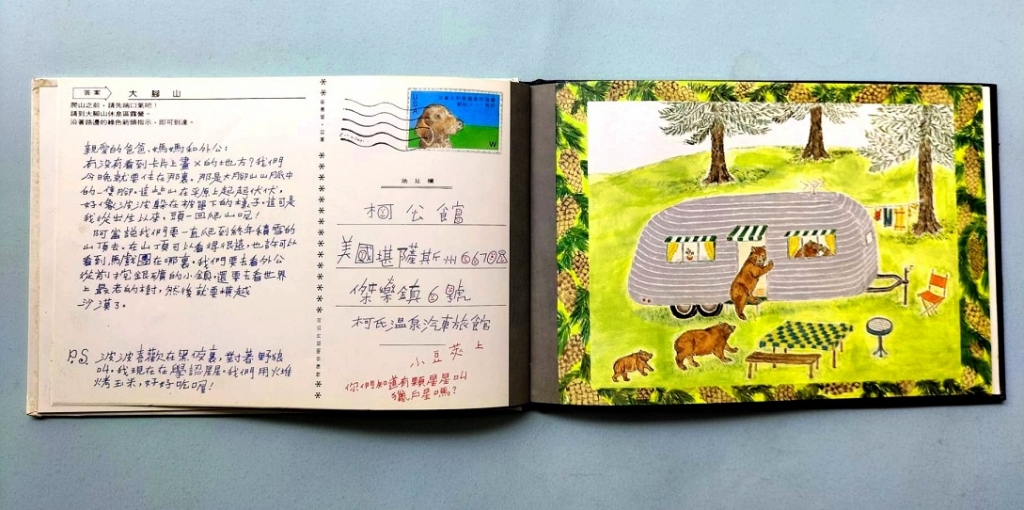 答案 大腳山
爬山之前，請先喘口氣吧！
請到大腳山休息區露營。
沿著路邊的綠色箭頭指示，即可到達。
親愛的爸爸、媽媽和外公：
有沒有看到卡片上畫X的地方？我們
今晚就要住在那裏，那是大腳山山脈中
的一隻腳。這些山在平原上起起伏伏，
好像波波躲在被單下的樣子。這可是
我從出生以來，頭一回爬山呢！
阿當說我們要一直爬到終年積雪的
山頂去。在山頂可以看得很遠，也許可以
看到馬戲團在哪裏。我們要去看外公
從前挖銀礦的小鎮，還要去看世界
上最老的樹，然後就要橫越
沙漠了。
P.S. 波波喜歡在黑夜裏，對著野狼
叫。我現在在學認星星。我們用火堆
烤玉米，好好吃喔！
地址欄
柯公館
美國堪薩斯州66708
傑樂鎮6號
柯氏温泉汽車旅館
小豆莢 上
你們知道有顆星星叫
獵戶星嗎？